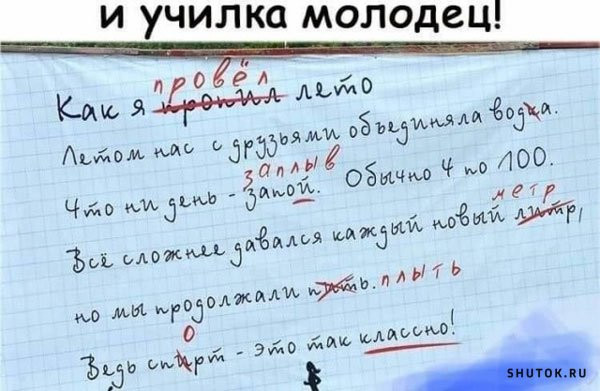 и училка молодец!
провёл
Как я пропил лето
Летом нас с друзьями объединяла водка.
заплыв
Что ни день - запой. Обычно 4 по 100.
метр
Всё сложнее давался каждый новый литр,
но мы продолжали пить. плыть
о
Ведь спирт - это так классно!
SHUTOK.RU